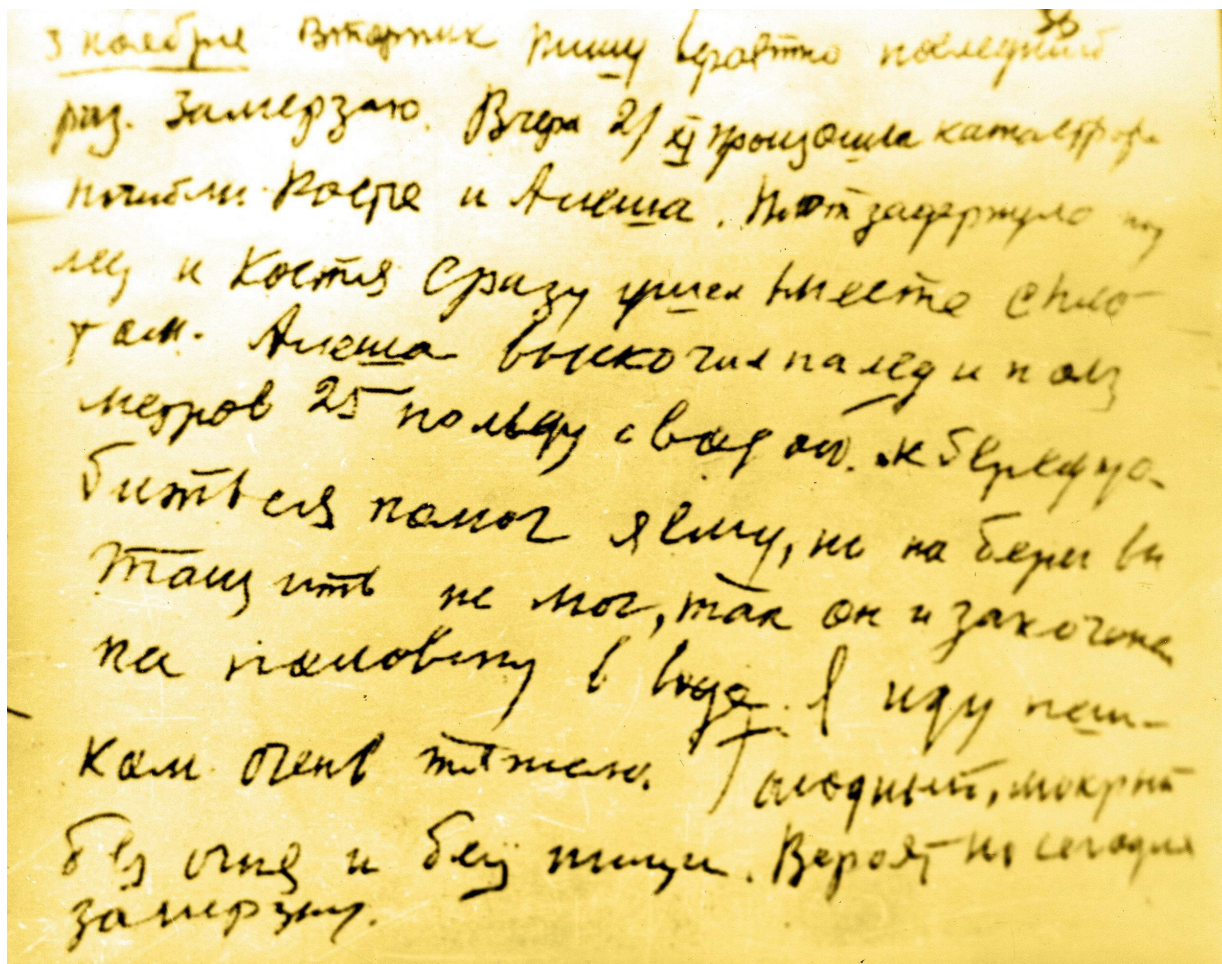 3 ноября Вторник Пишу вероятно последний
раз. Замерзаю. Вчера 2/XI произошла катастрофа
погибли Костя и Алеша. Плот задернуло под
лед и Костя сразу ушел вместе с пло-
том. Алеша выскочил на лед и полз
метров 25 по льду с водой. К берегу про-
биться помог я ему, но на берег вы
тащить не мог, так он и закоченел
на половину в воде. Я иду пеш-
ком очень тяжело. Голодный, мокрый
без огня и без пищи. Вероятно сегодня
замерзну.